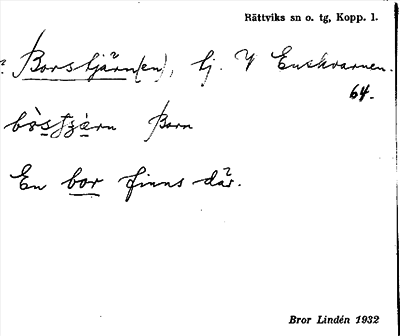 Rättviks sn o. tg, Kopp. l.
? Borstjärn(en), tj. V Enskvarnen.
64.
bòstjàrn
En bor finns där.
Bror Lindén 1932